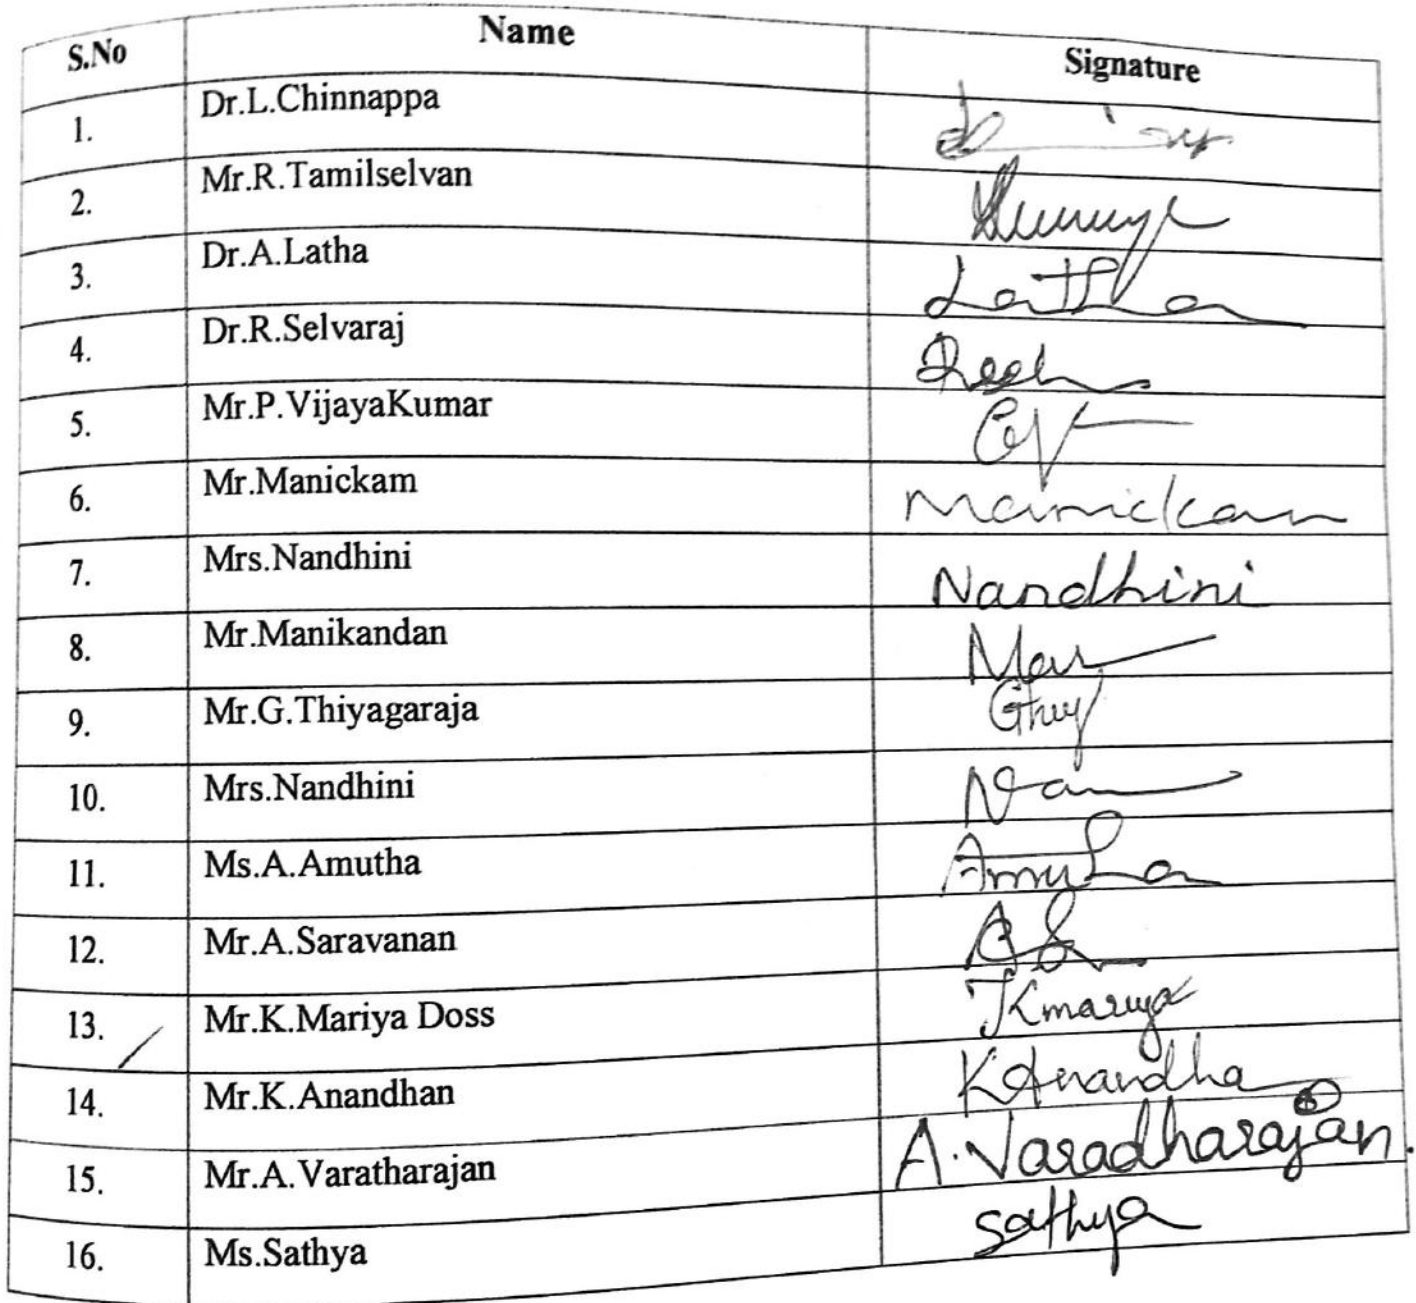 S.No Name Signature
1. Dr.L.Chinnappa
2. Mr.R.Tamilselvan
3. Dr.A.Latha Latha
4. Dr.R.Selvaraj
5. Mr.P.VijayaKumar
6. Mr.Manickam Manickam
7. Mrs.Nandhini Nandhini
8. Mr.Manikandan
9. Mr.G.Thiyagaraja
10. Mrs.Nandhini
11. Ms.A.Amutha Amutha
12. Mr.A.Saravanan
13. Mr.K.Mariya Doss Kmariya
14. Mr.K.Anandhan K Anandha
15. Mr.A.Varatharajan A.Varadharajan.
16. Ms.Sathya Sathya